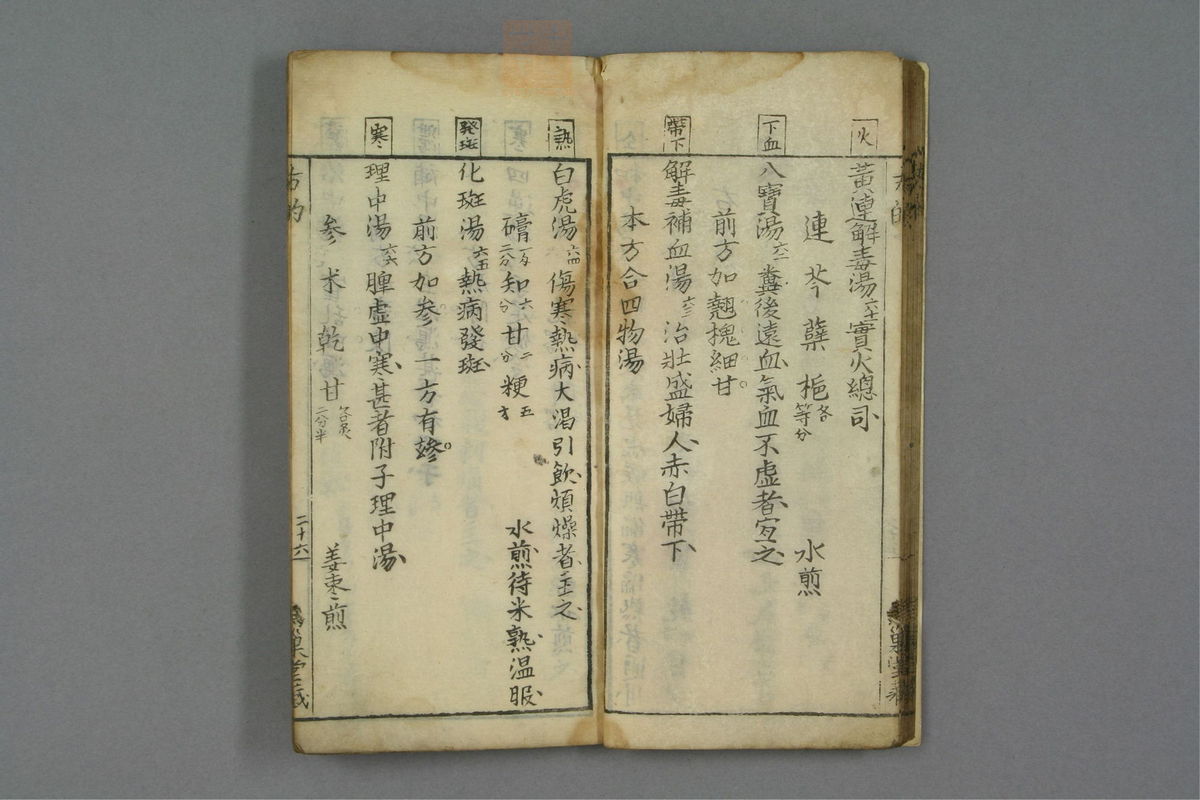 火
黃連解毒湯六十實火總司
連芩蘗梔各等分水煎
下血
八寶湯六一糞後遠血氣血不虛者宜之
前方加翹槐細甘
帶下
解毒補血湯六二治壯盛婦人赤白帶下
本方合四物湯
熱
白虎湯六四傷寒熱病大渴引飲煩燥者主之
知六分甘二分粳五水煎待米熟温服
發斑
化斑湯六五熱病發斑
前方加参一方有蔘
寒
理中湯六六脾虛中寒甚者附子理中湯
参朮乾甘各炙二分半姜枣煎
古方
二十六
巢堂藏